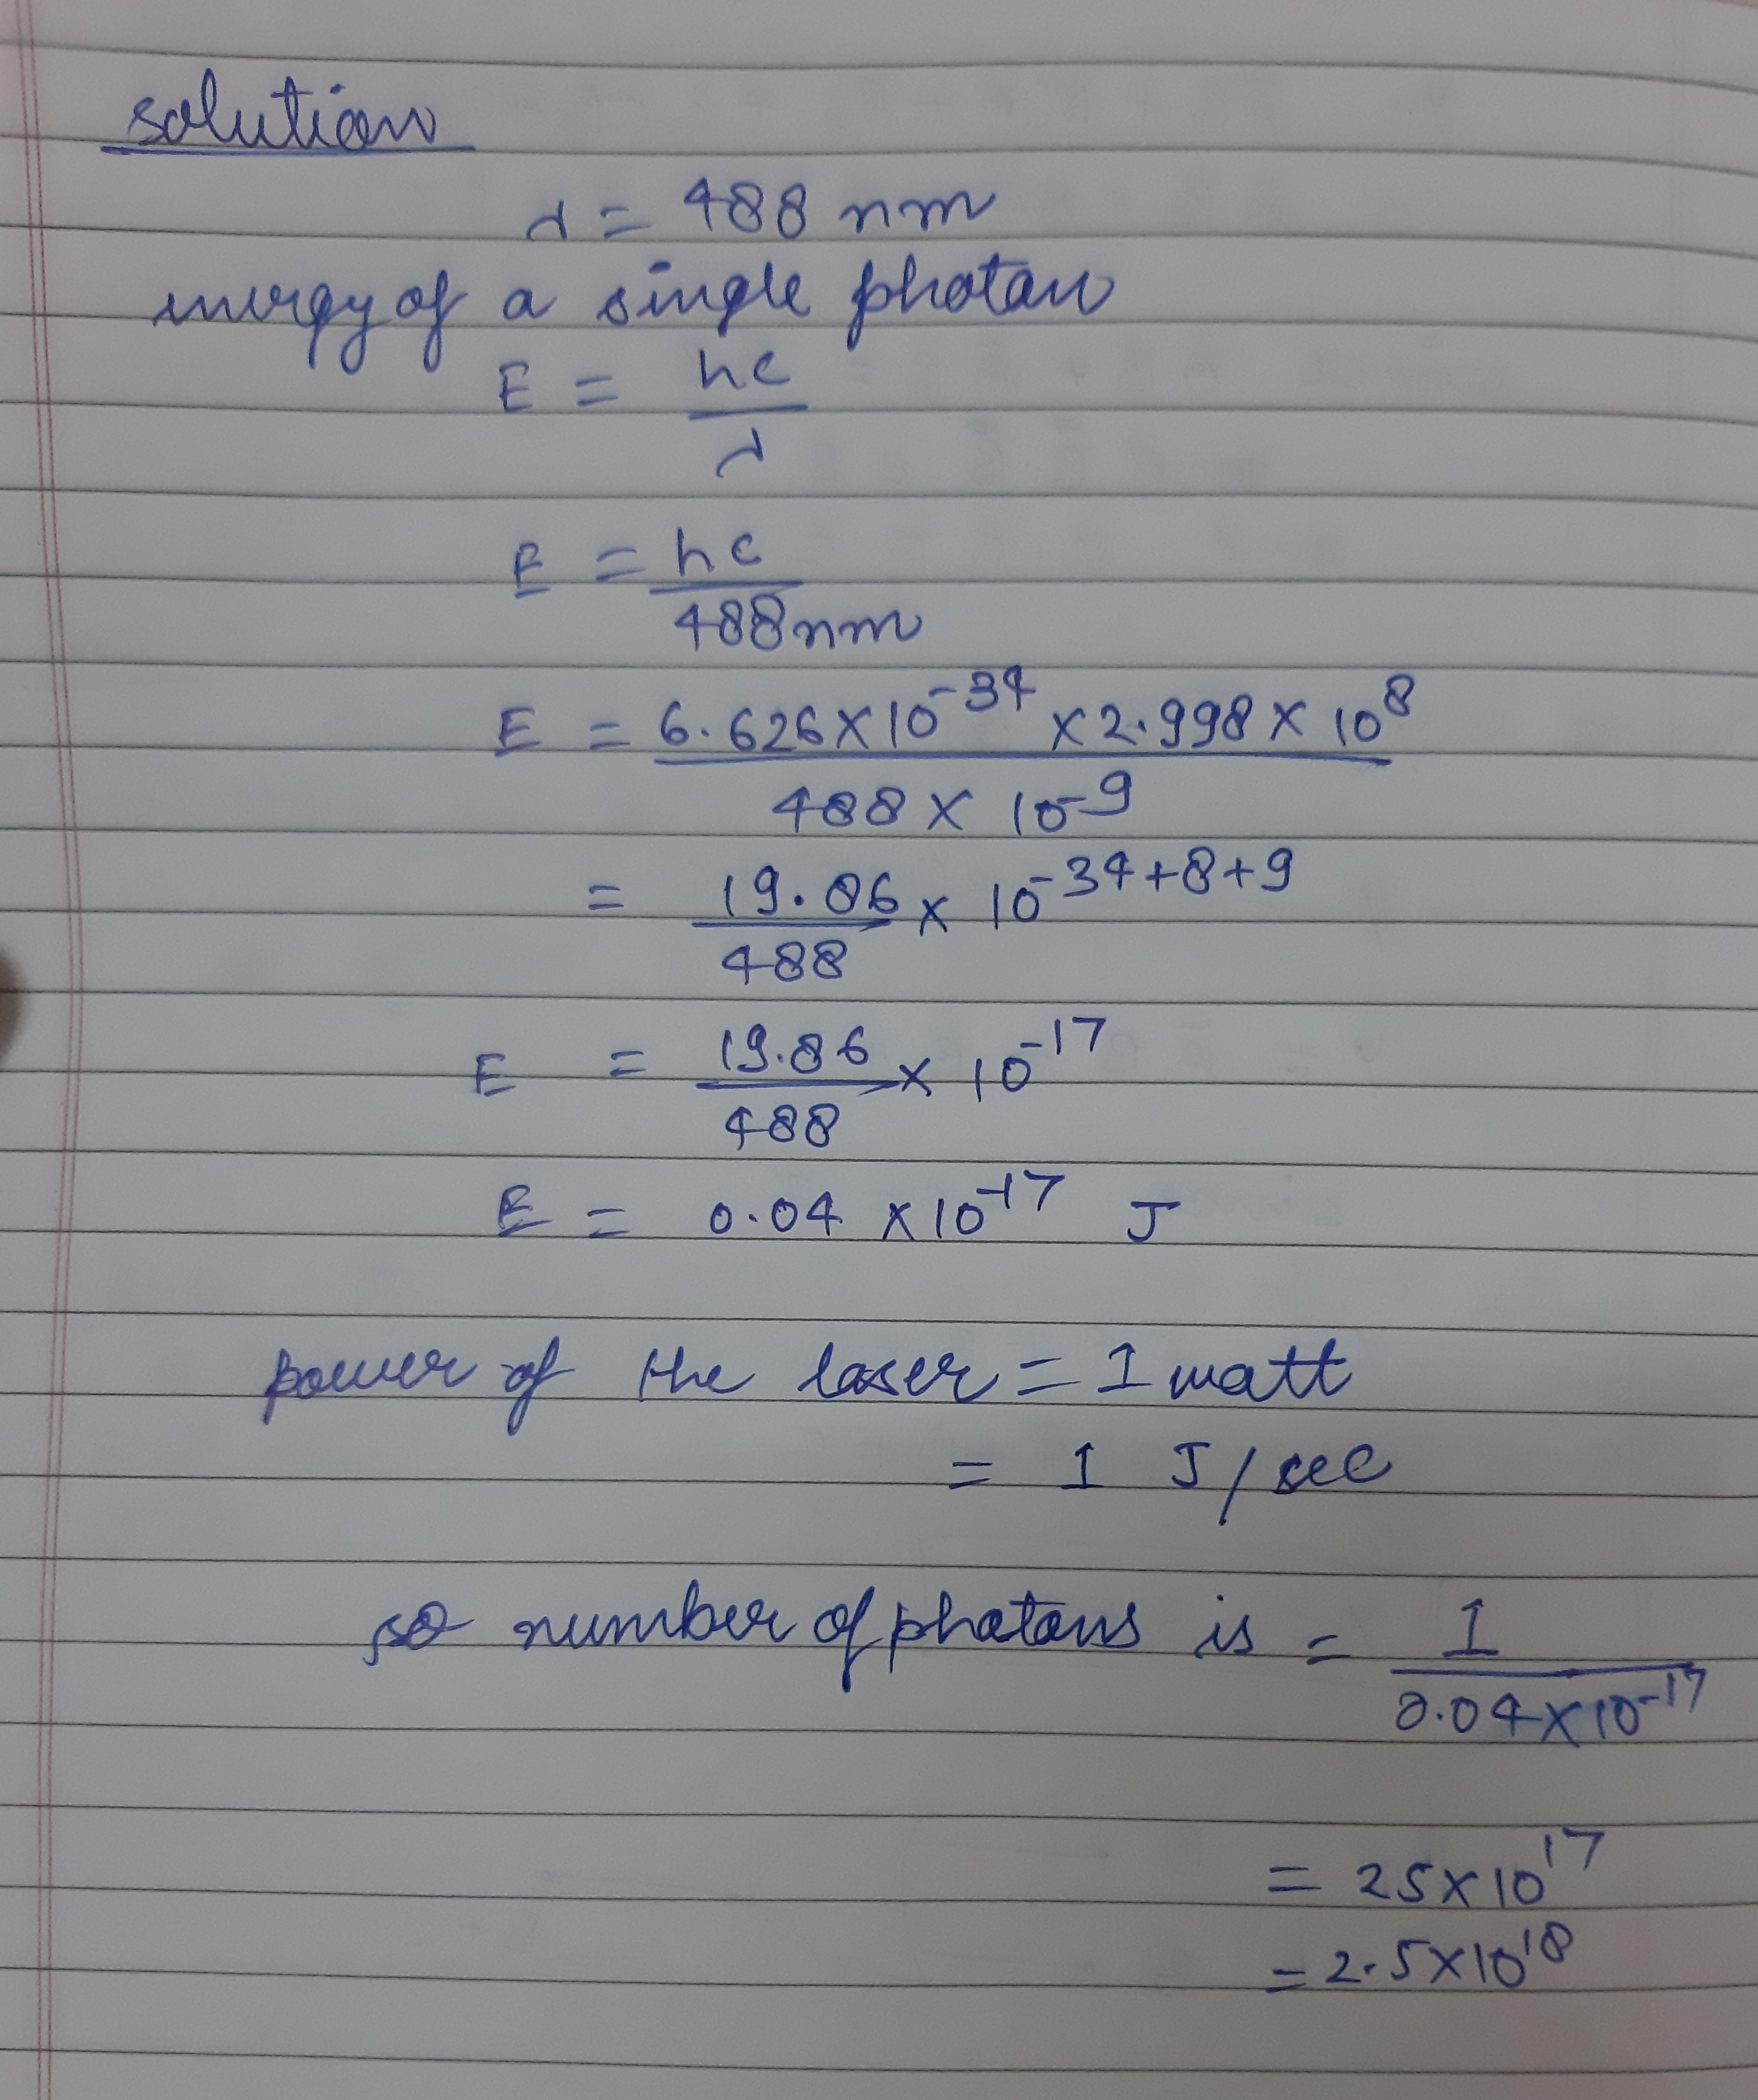 solution
λ = 488 nm
energy of a single photon
E = hc
λ
E = hc
488nm
E = 6.626×10^-34 ×2.998×10^8
488×10^-9
= 19.86 × 10^-34+8+9
488
E = 19.86 × 10^-17
488
E = 0.04 ×10^-17 J
power of the laser = 1 watt
= 1 J/sec
so number of photons is = 1
0.04×10^-17
= 25×10^17
= 2.5×10^18